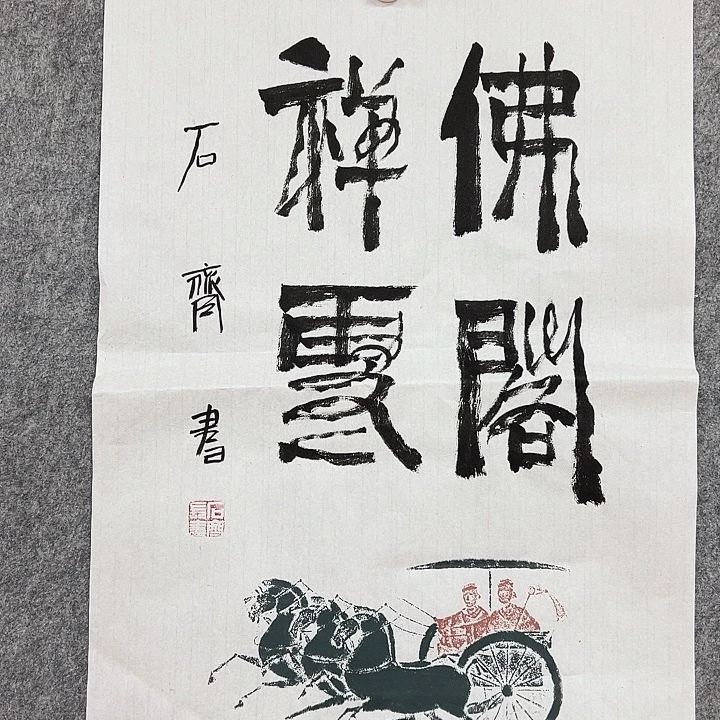 佛閣
禪雲
石齊書